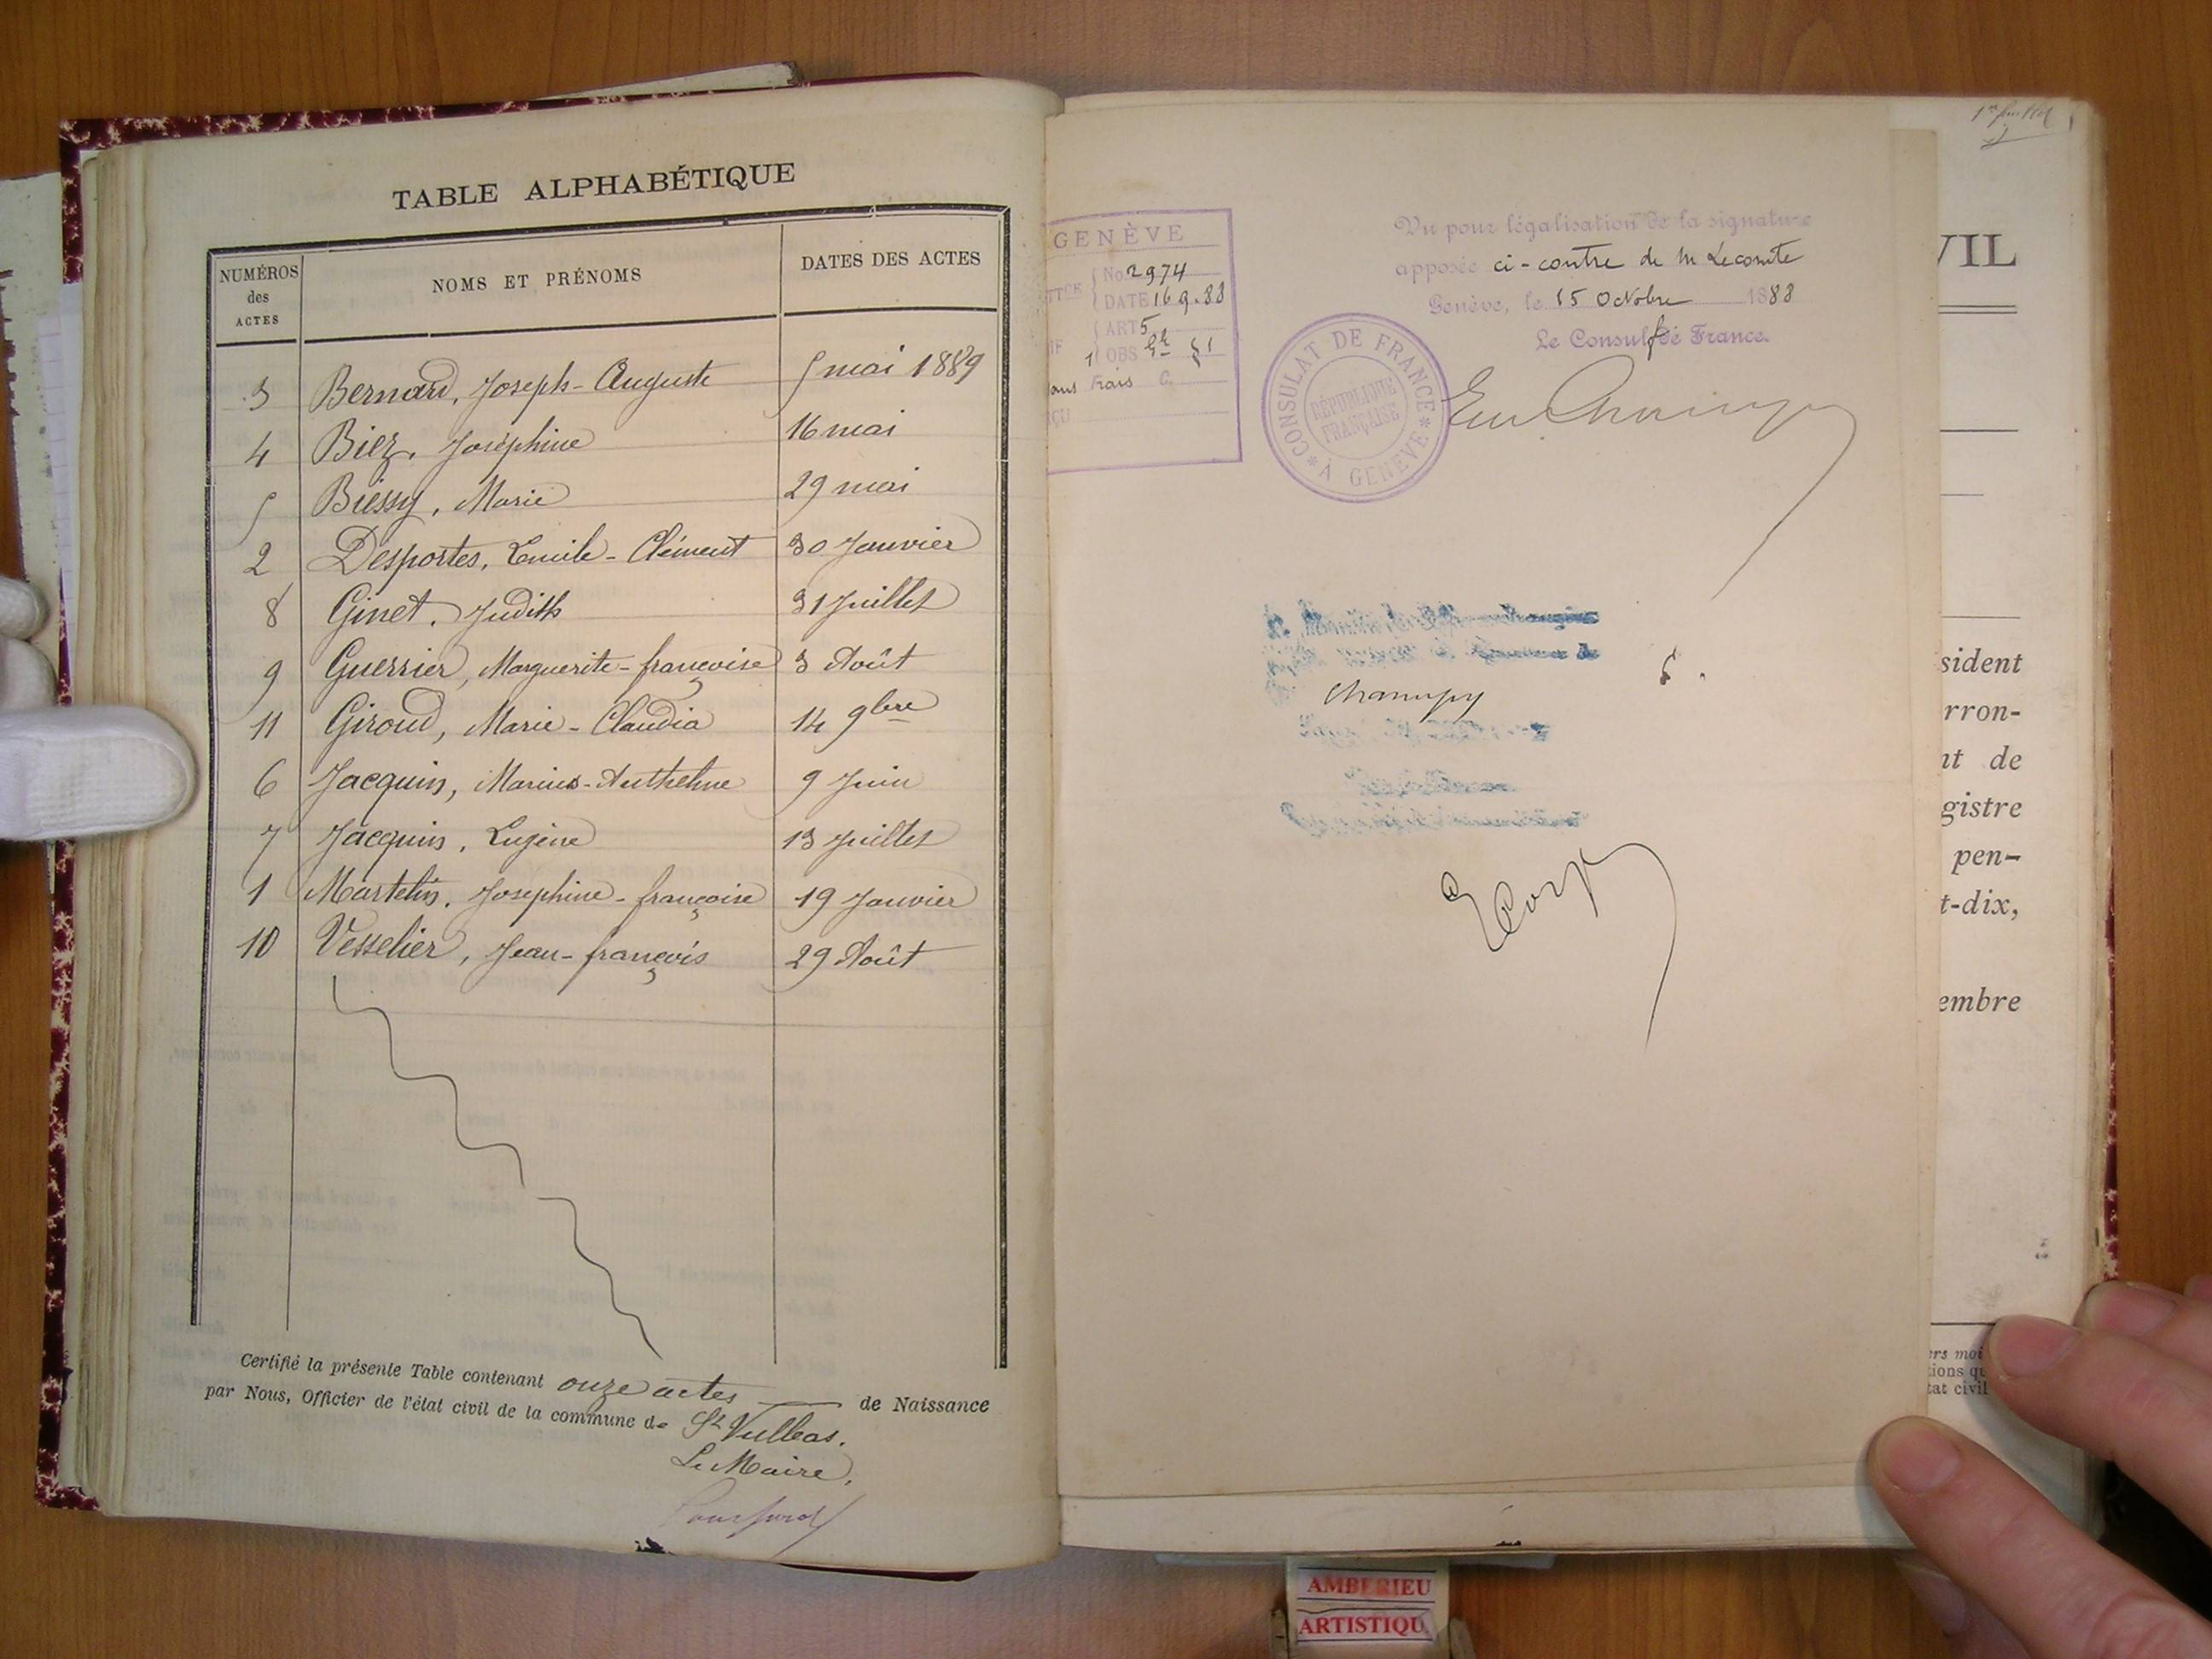 TABLE ALPHABÉTIQUE
NUMÉROS des ACTES
NOMS ET PRÉNOMS
DATES DES ACTES
3 Bernard, Joseph-Auguste 5 mai 1889
4 Biez, Joséphine 16 mai
5 Biessy, Marie 29 mai
2 Desportes, Emile-Clément 30 Janvier
8 Ginet, Judith 31 Juillet
9 Guerrier, Marguerite-françoise 3 Août
11 Giroud, Marie-Claudia 14 9bre
6 Jacquin, Marius-Anthelme 9 Juin
7 Jacquin, Eugène 13 Juillet
1 Martelin, Josephine-françoise 19 Janvier
10 Vesselier, Jean-françois 29 Août
Certifié la présente Table contenant onze actes de Naissance
par Nous, Officier de l'état civil de la commune de St Vulbas.
Le Maire,
GENÈVE
No 2974
DATE 16 9.88
ART 5
OBS
Frais
Vu pour légalisation de la signature
apposée ci-contre de M Lecomte
Genève, le 15 Octobre 1888
Le Consul de France.
CONSULAT DE FRANCE
* À GENÈVE *
RÉPUBLIQUE
FRANÇAISE
VIL
sident
rron-
nt de
gistre
pen-
t-dix,
embre
ers moi
tions qu
tat civil
AMBERIEU
ARTISTIQU